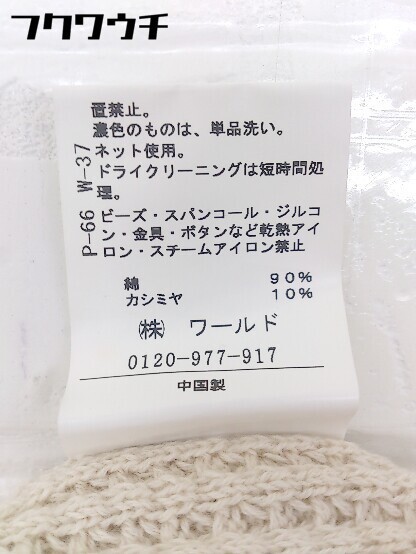 フクワウチ
直禁止。
濃色のものは、単品洗い。
W-37 ネット使用。
ドライクリーニングは短時間処
理。
P-66 ビーズ・スパンコール・ジルコ
ン・金具・ボタンなど乾熱アイ
ロン・スチームアイロン禁止
綿 90%
カシミヤ 10%
㈱ ワールド
0120-977-917
中国製